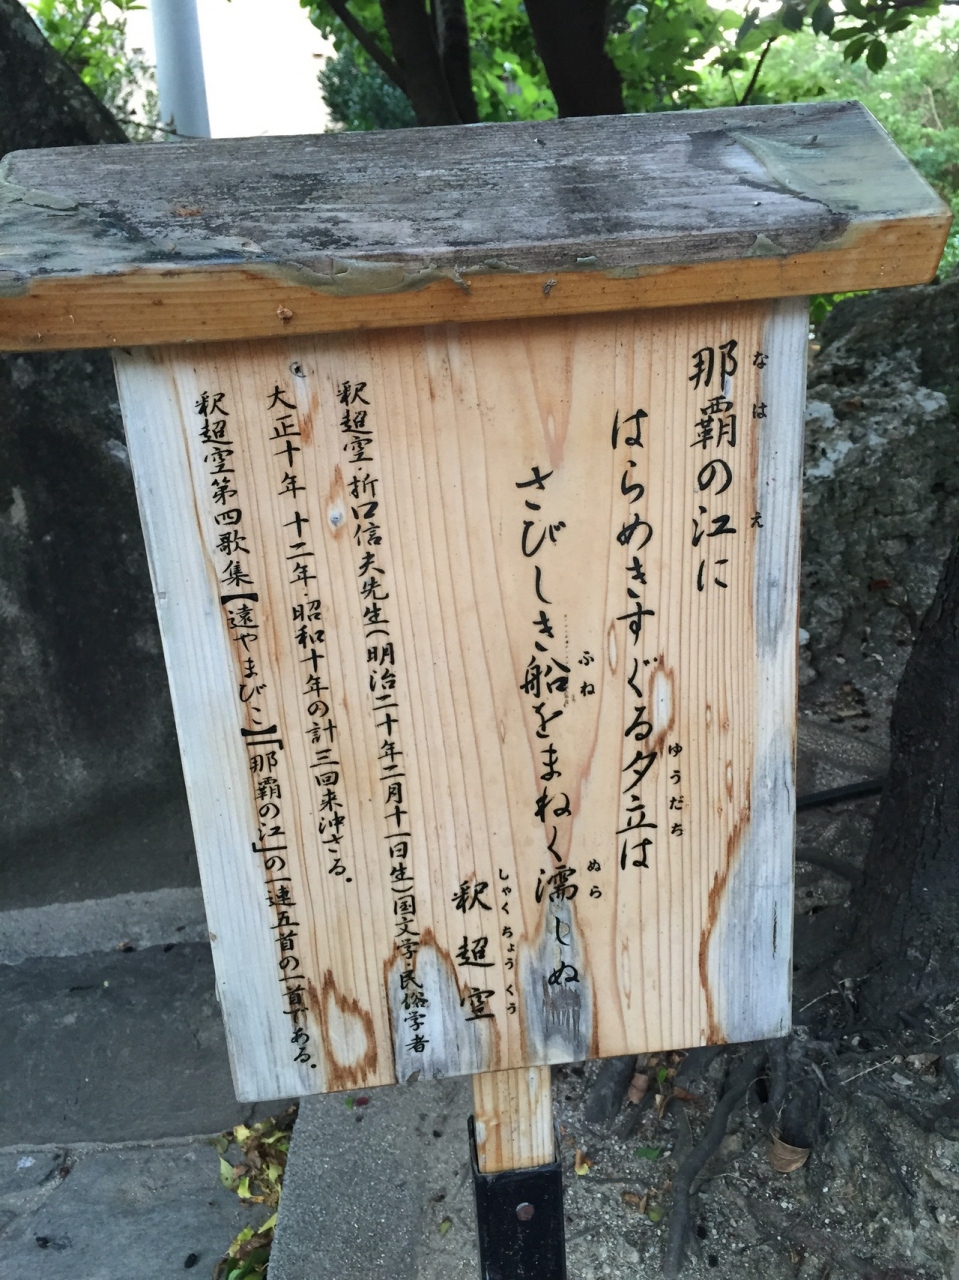 那覇の江に
なは
え
はらめきすぐる夕立は
ゆうだち
さびしき船をまねく濡しぬ
ふね
ぬら
釈超空
しゃくちょうくう
釈超空・折口信夫先生(明治二十年二月十一日生)国文学・民俗学者
大正十年 十二年・昭和十年の計三回来沖さる。
釈超空第四歌集【遠やまびこ】「那覇の江」の一連五首の一首である。